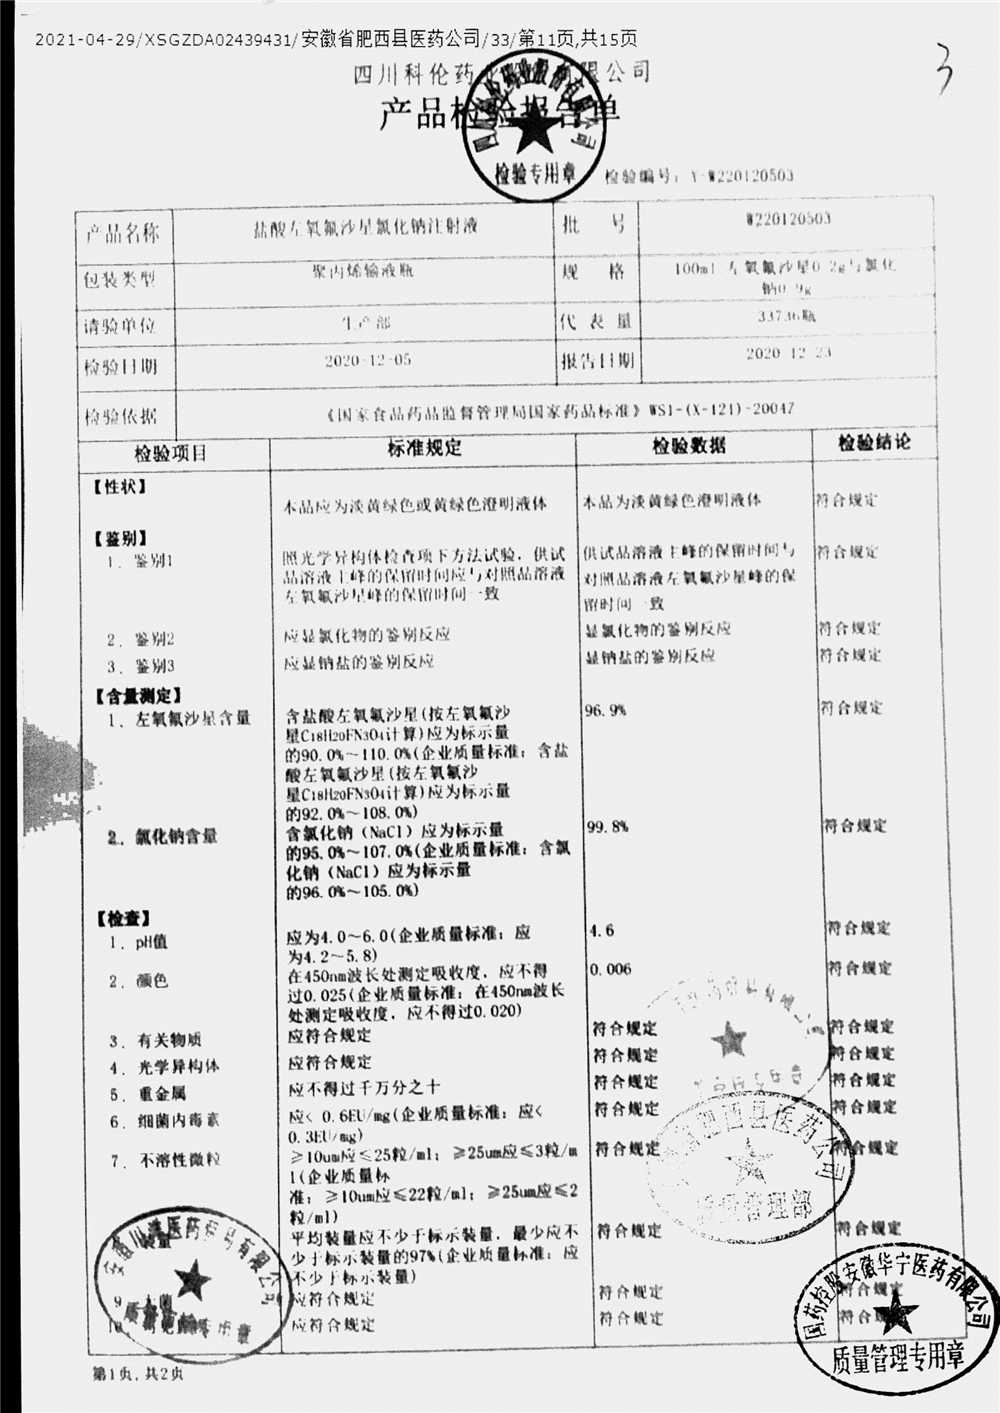 2021-04-29/XSGZDA02439431/安徽省肥西县医药公司/33/第11页,共15页
3
四川科伦药 限公司
产品检验报告单
检验专用章
检验编号: Y-W220120503
产品名称 盐酸左氧氟沙星氯化钠注射液 批 号 W220120503
包装类型 聚丙烯输液瓶 规 格 100ml 左氧氟沙星0.2g与氯化
钠0.9g
请验单位 生产部 代 表 量 33736瓶
检验日期 2020-12-05 报告日期 2020-12-23
检验依据 《国家食品药品监督管理局国家药品标准》WS1-(X-121)-2004Z
检验项目 标准规定 检验数据 检验结论
【性状】
本品应为淡黄绿色或黄绿色澄明液体 本品为淡黄绿色澄明液体 符合规定
【鉴别】
1. 鉴别1 照光学异构体检查项下方法试验，供试 供试品溶液主峰的保留时间与 符合规定
品溶液主峰的保留时间应与对照品溶液 对照品溶液左氧氟沙星峰的保
左氧氟沙星峰的保留时间一致 留时间一致
2. 鉴别2 应显氯化物的鉴别反应 显氯化物的鉴别反应 符合规定
3. 鉴别3 应显钠盐的鉴别反应 显钠盐的鉴别反应 符合规定
【含量测定】
1. 左氧氟沙星含量 含盐酸左氧氟沙星(按左氧氟沙 96.9% 符合规定
星C18H20FN3O4计算)应为标示量
的90.0%～110.0%(企业质量标准：含盐
酸左氧氟沙星(按左氧氟沙
星C18H20FN3O4计算)应为标示量
的92.0%～108.0%)
2. 氯化钠含量 含氯化钠（NaCl）应为标示量 99.8% 符合规定
的95.0%～107.0%(企业质量标准：含氯
化钠（NaCl）应为标示量
的96.0%～105.0%)
【检查】
1. pH值 应为4.0～6.0(企业质量标准：应 4.6 符合规定
为4.2～5.8)
2. 颜色 在450nm波长处测定吸收度，应不得 0.006 符合规定
过0.025(企业质量标准：在450nm波长
处测定吸收度，应不得过0.020)
3. 有关物质 应符合规定 符合规定 符合规定
4. 光学异构体 应符合规定 符合规定 符合规定
5. 重金属 应不得过千万分之十 符合规定 符合规定
6. 细菌内毒素 应< 0.6EU/mg(企业质量标准：应< 符合规定 符合规定
0.3EU/mg)
7. 不溶性微粒 ≥10um应≤25粒/ml；≥25um应≤3粒/m 符合规定 符合规定
l(企业质量标
准：≥10um应≤22粒/ml；≥25um应≤2
粒/ml)
装量 平均装量应不少于标示装量，最少应不 符合规定 符合规定
少于标示装量的97%(企业质量标准：应
不少于标示装量)
9. 无菌 应符合规定 符合规定 符合规定
10. 应符合规定 符合规定 符合规定
肥西县医药公司
质量管理部
国药控股安徽华宁医药有限公司
质量管理专用章
第1页，共2页